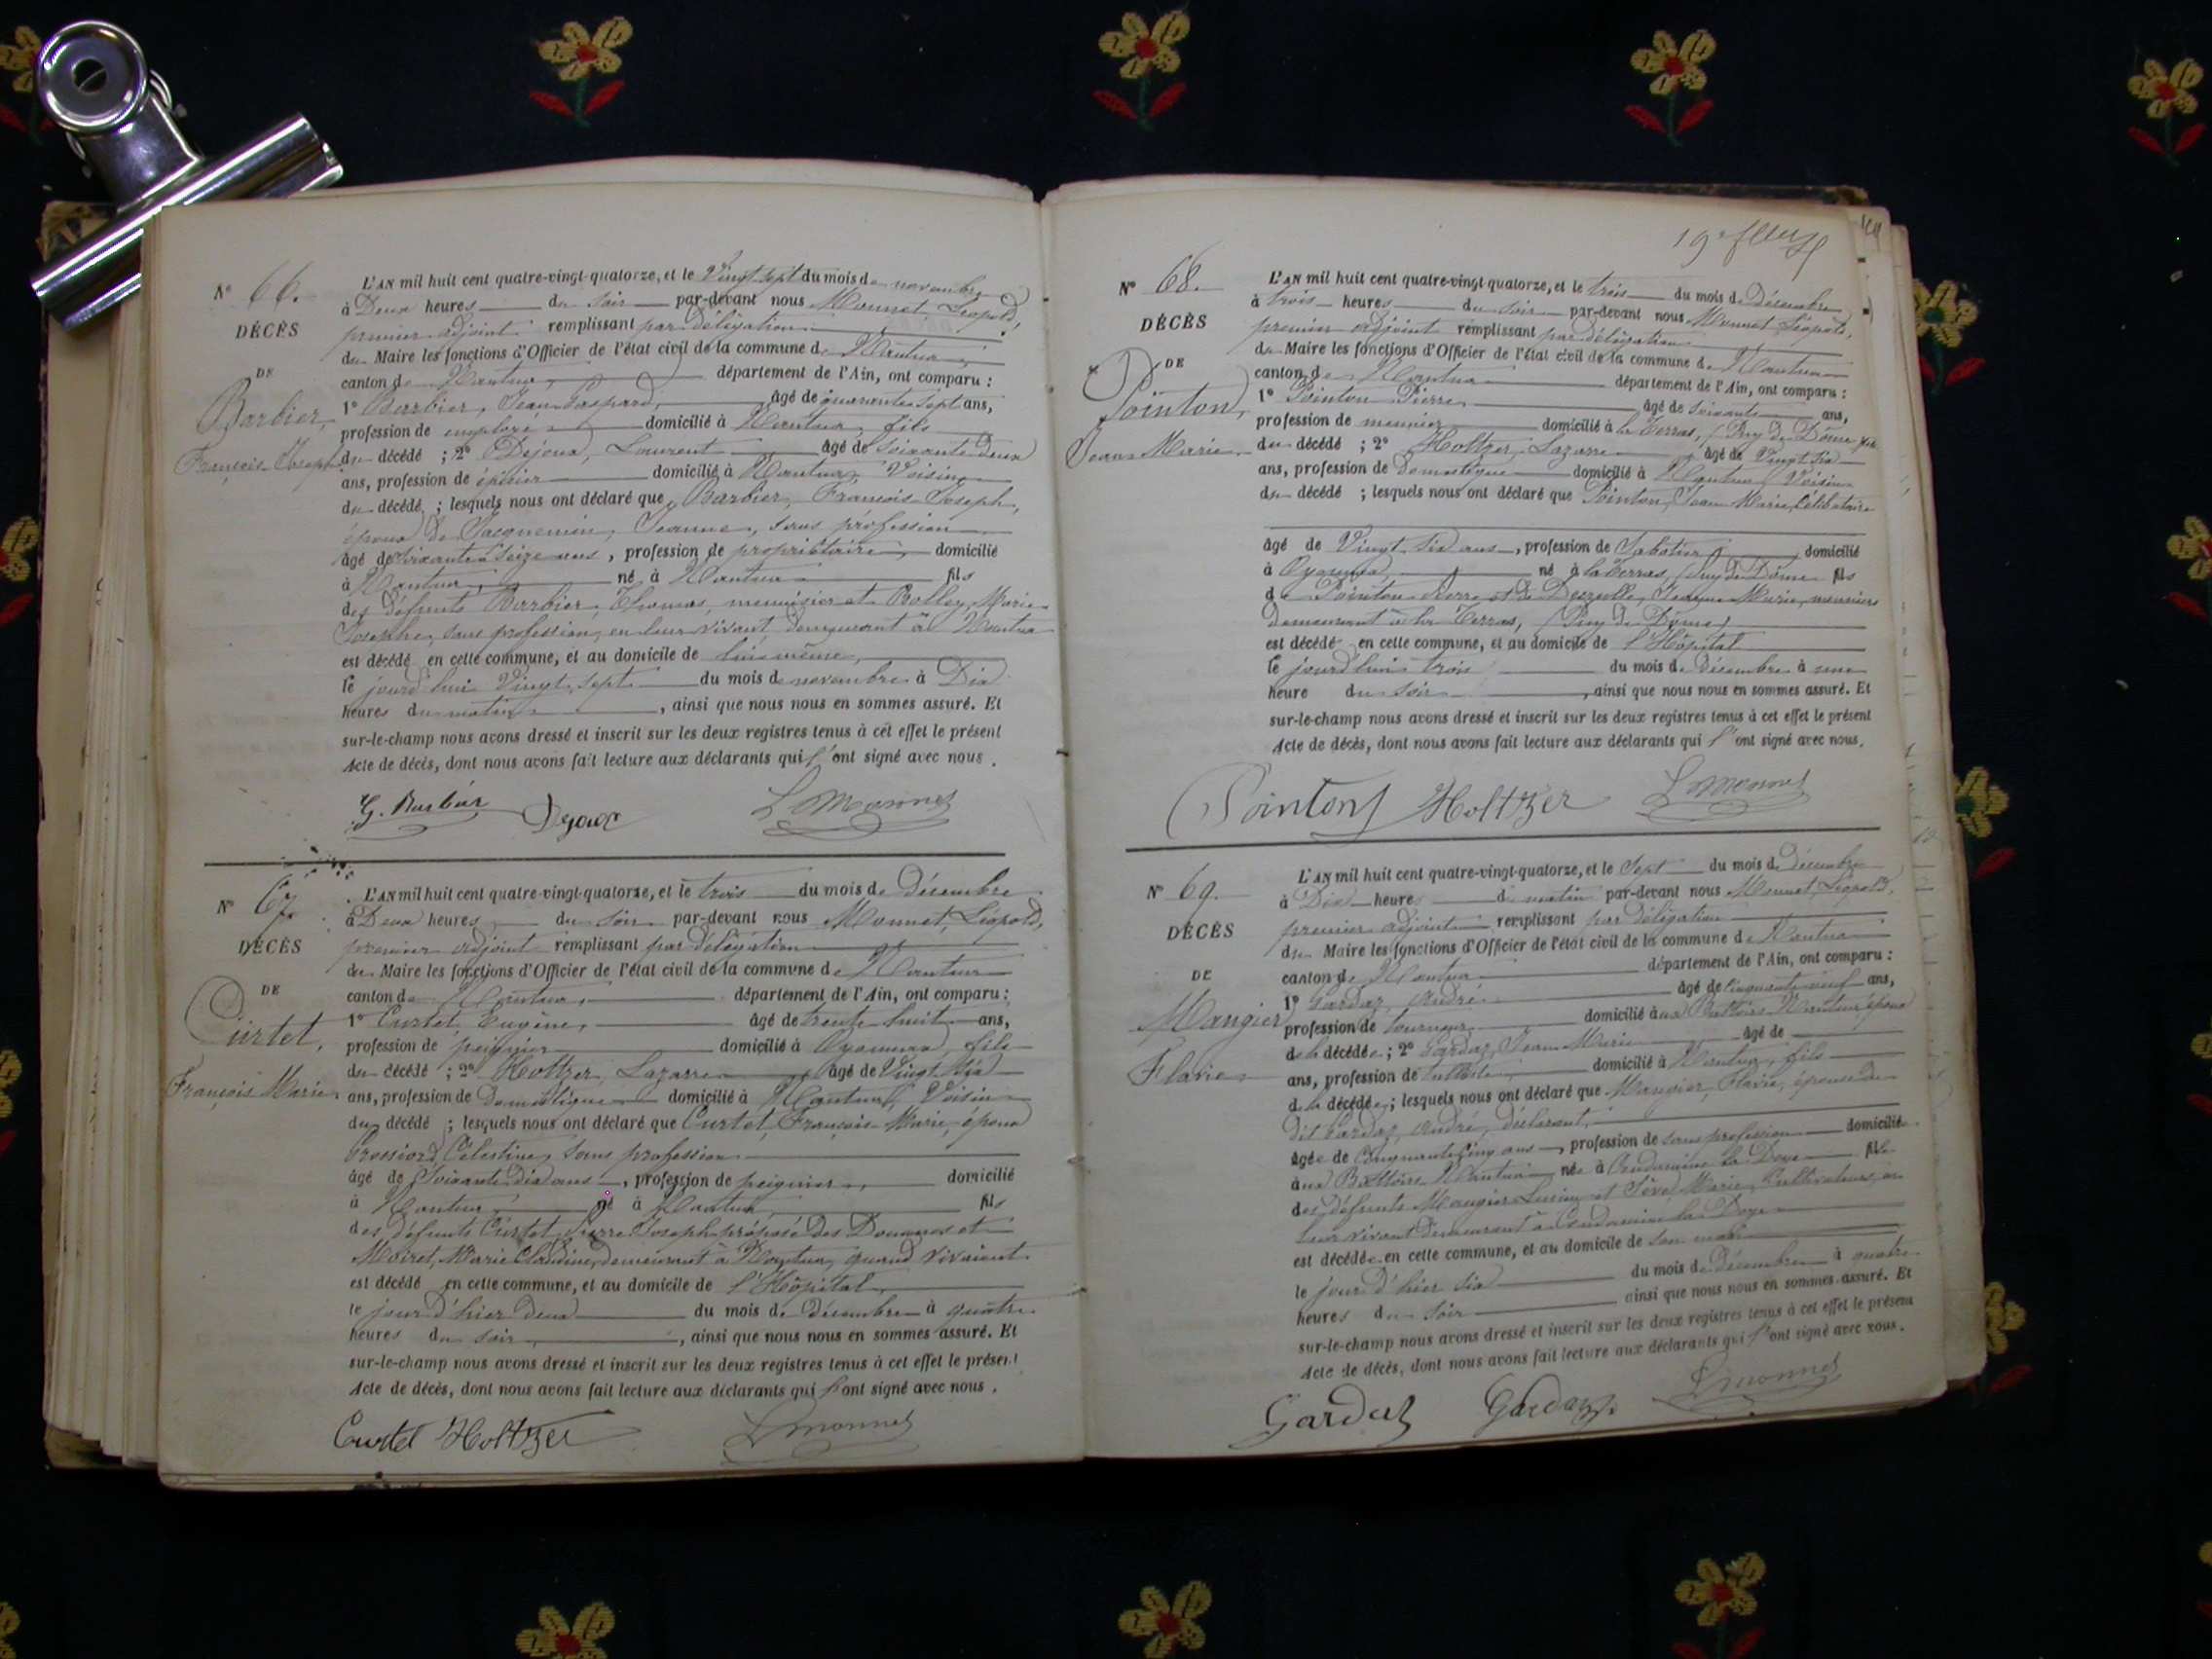 N° 66.
DÉCÈS
DE
Barbier,
François Joseph
L'AN mil huit cent quatre-vingt-quatorze, et le Vingt sept du mois de novembre
à Deux heures du soir par-devant nous Monnet, Léopold,
premier adjoint remplissant par délégation
du Maire les fonctions d'Officier de l'état civil de la commune de Nantua
canton de Nantua, département de l'Ain, ont comparu :
1° Barbier, Jean Gaspard, âgé de quarante sept ans,
profession de employé domicilié à Nantua, fils
du décédé ; 2° Dejoux, Laurent âgé de soixante deux
ans, profession de épicier domicilié à Nantua, Voisin
du décédé ; lesquels nous ont déclaré que Barbier, François Joseph,
époux de Jacquemin, Jeanne, sans profession
âgé de soixante seize ans, profession de propriétaire, domicilié
à Nantua, né à Nantua fils
des défunts Barbier, Thomas, menuisier et Bolley, Marie
Josephe, sans profession, en leur vivant demeurant à Nantua
est décédé en cette commune, et au domicile de lui même,
le jourd'hui Vingt sept du mois de novembre à Dix
heures du matin, ainsi que nous nous en sommes assuré. Et
sur-le-champ nous avons dressé et inscrit sur les deux registres tenus à cet effet le présent
Acte de décès, dont nous avons fait lecture aux déclarants qui l'ont signé avec nous.
G. Barbier Dejoux L Monnet
N° 67.
DÉCÈS
DE
Curtet,
François Marie
L'AN mil huit cent quatre-vingt-quatorze, et le trois du mois de Décembre
à Deux heures du soir par-devant nous Monnet, Léopold,
premier adjoint remplissant par délégation
du Maire les fonctions d'Officier de l'état civil de la commune de Nantua
canton de Nantua, département de l'Ain, ont comparu :
1° Curtet, Eugène, âgé de trente huit ans,
profession de peignier domicilié à Oyonnax, fils
du décédé ; 2° Holtzer, Lazarre âgé de Vingt six
ans, profession de Domestique domicilié à Nantua, Voisin
du décédé ; lesquels nous ont déclaré que Curtet, François Marie, époux
Célestine, sans profession
âgé de Soixante Dix ans, profession de peignier, domicilié
à Nantua né à Nantua, fils
des défunts Curtet, Pierre Joseph préposé des Douanes et
Moiret, Marie Claudine, demeurant à Nantua, quand vivaient
est décédé en cette commune, et au domicile de l'Hôpital
le jour d'hier deux du mois de Décembre à quatre
heures du soir, ainsi que nous nous en sommes assuré. Et
sur-le-champ nous avons dressé et inscrit sur les deux registres tenus à cet effet le présent
Acte de décès, dont nous avons fait lecture aux déclarants qui l'ont signé avec nous.
Curtet Holtzer L monnet
N° 68.
DÉCÈS
DE
Pointon,
Jean Marie
L'AN mil huit cent quatre-vingt-quatorze, et le trois du mois de Décembre
à trois heures du soir par-devant nous Monnet Léopold,
premier adjoint remplissant par délégation
du Maire les fonctions d'Officier de l'état civil de la commune de Nantua
canton de Nantua département de l'Ain, ont comparu :
1° Pointon Pierre, âgé de soixante ans,
profession de meunier domicilié à la (Puy de Dôme
du décédé ; 2° Holtzer, Lazarre âgé de Vingt six
ans, profession de Domestique domicilié à Nantua, Voisin
du décédé ; lesquels nous ont déclaré que Pointon, Jean Marie, Célibataire
âgé de Vingt six ans, profession de Sabotier, domicilié
à Oyonnax né à la (Puy de Dôme fils
de Pointon Pierre et de Jeanne Marie, meuniers
demeurant à la (Puy de Dôme)
est décédé en cette commune, et au domicile de l'Hôpital
le jourd'hui trois du mois de décembre à une
heure du soir, ainsi que nous nous en sommes assuré. Et
sur-le-champ nous avons dressé et inscrit sur les deux registres tenus à cet effet le présent
Acte de décès, dont nous avons fait lecture aux déclarants qui l'ont signé avec nous.
Pointon Holtzer L monnet
N° 69.
DÉCÈS
DE
Mangier
Flavie
L'AN mil huit cent quatre-vingt-quatorze, et le Sept du mois de Décembre
à Dix heures du matin par-devant nous Monnet, Léopold,
premier adjoint remplissant par délégation
du Maire les fonctions d'Officier de l'état civil de la commune de Nantua
canton de Nantua département de l'Ain, ont comparu :
1° Gardaz, André âgé de Cinquante neuf ans,
profession de tourneur domicilié aux Battoirs Nantua époux
de la décédée ; 2° Gardaz, Jean Marie âgé de
ans, profession de domicilié à Nantua, fils
de la décédée ; lesquels nous ont déclaré que Mangier, Flavie, épouse du
dit Gardaz, André, déclarant,
âgée de Cinquante Cinq ans, profession de sans profession domiciliée
aux Battoirs Nantua née à Condamine la Doye fille
des défunts Mangier et Marie, Cultivateurs, en
leur vivant Demeurant à Condamine la Doye
est décédée en cette commune, et au domicile de son mari
le jour d'hier six du mois de Décembre à quatre
heures du soir ainsi que nous nous en sommes assuré. Et
sur-le-champ nous avons dressé et inscrit sur les deux registres tenus à cet effet le présent
Acte de décès, dont nous avons fait lecture aux déclarants qui l'ont signé avec nous.
Gardaz Gardaz L monnet